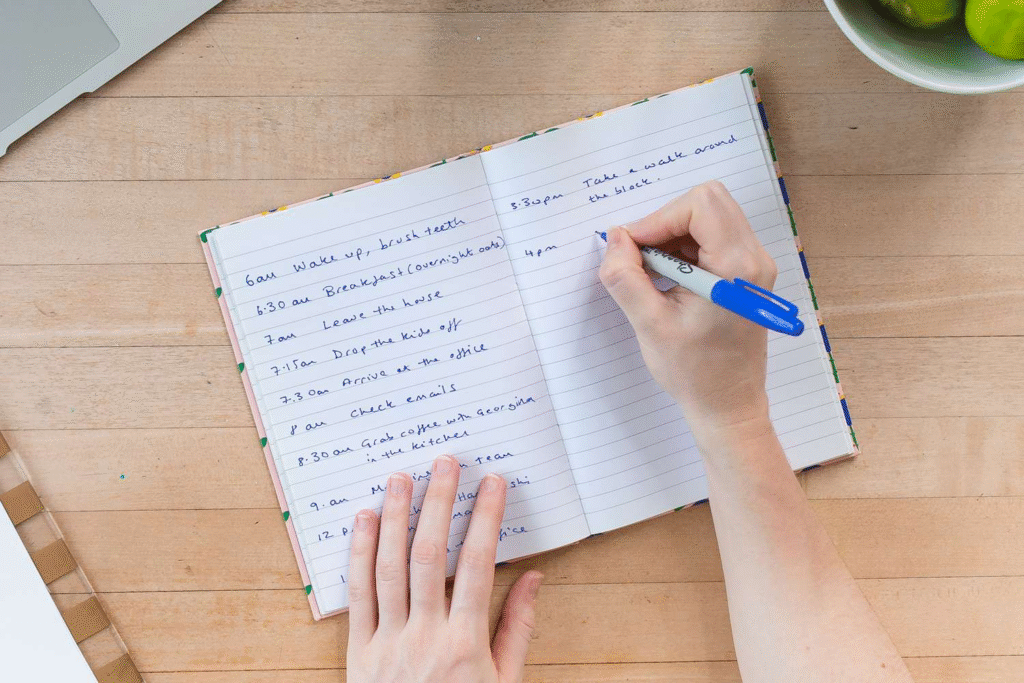 6am Wake up, brush teeth
6:30 am Breakfast (overnight oats)
7am Leave the house
7.15am Drop the kids off
7.30am Arrive at the office
8 am Check emails
8.30am Grab coffee with Georgina
in the kitchen
9.am team
12
3.30pm Take a walk around
the block.
4pm
Sharpie